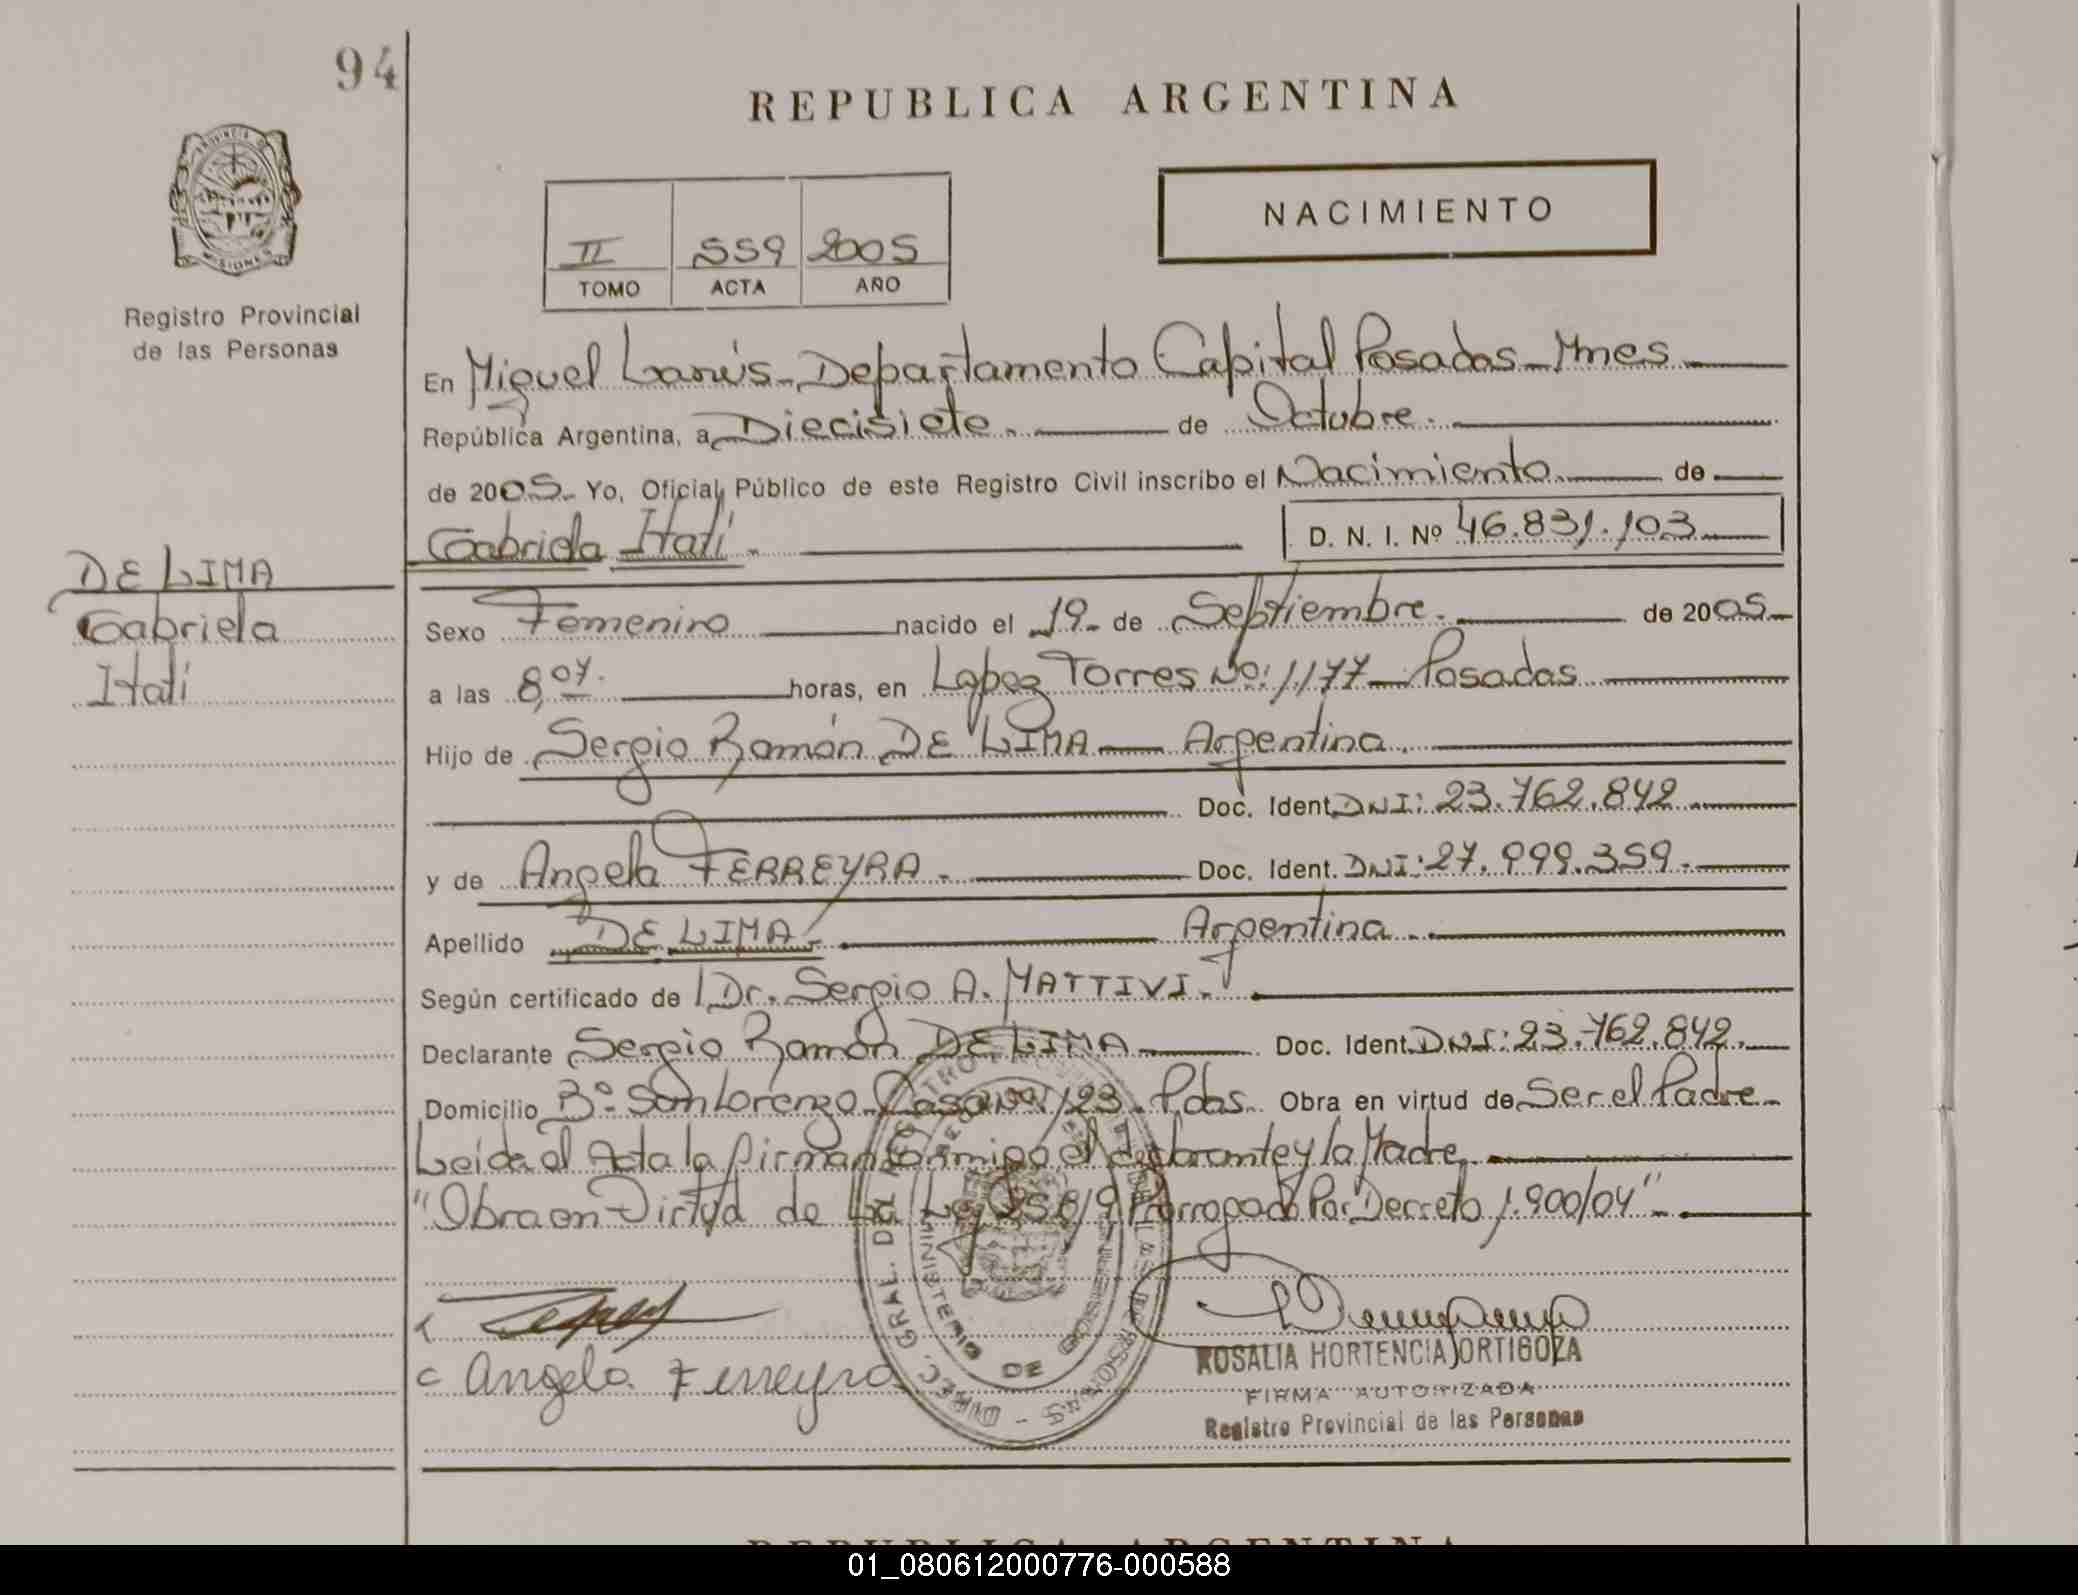 94
REPUBLICA ARGENTINA
NACIMIENTO
II 559 2005
TOMO ACTA AÑO
MISIONES
Registro Provincial
de las Personas
En Miguel Lanús - Departamento Capital Posadas - Mnes
República Argentina, a Diecisiete. de Octubre.
de 2005. Yo, Oficial Público de este Registro Civil inscribo el Nacimiento de
Gabriela Itatí. D. N. I. Nº 46.831.103
DE LIMA
Gabriela
Itatí
Sexo Femenino nacido el 19 de Septiembre. de 2005
a las 8,07. horas, en Lopez Torres No: 1.177 - Posadas
Hijo de Sergio Ramón DE LIMA - Argentina.
Doc. Ident. DNI: 23.762.842
y de Angela FERREYRA. Doc. Ident. DNI: 27.999.359.
Apellido DE LIMA - Argentina.
Según certificado de Dr. Sergio A. MATTIVI.
Declarante Sergio Ramón DE LIMA Doc. Ident. DNI: 23.762.842.
Domicilio Bº San Lorenzo Casa No: 123. Pdas. Obra en virtud de Ser el Padre
Leida el Acta la firman conmigo el declarante y la Madre
"Obra en Virtud de La Ley 25.819 Prorrogado Por Decreto 1.900/04"
Angela Ferreyra
ROSALIA HORTENCIA ORTIGOZA
FIRMA AUTORIZADA
Registro Provincial de las Personas
DIREC. GRAL. DEL REGISTRO DE LAS PERSONAS
MINISTERIO DE
REPUBLICA ARGENTINA
01_080612000776-000588